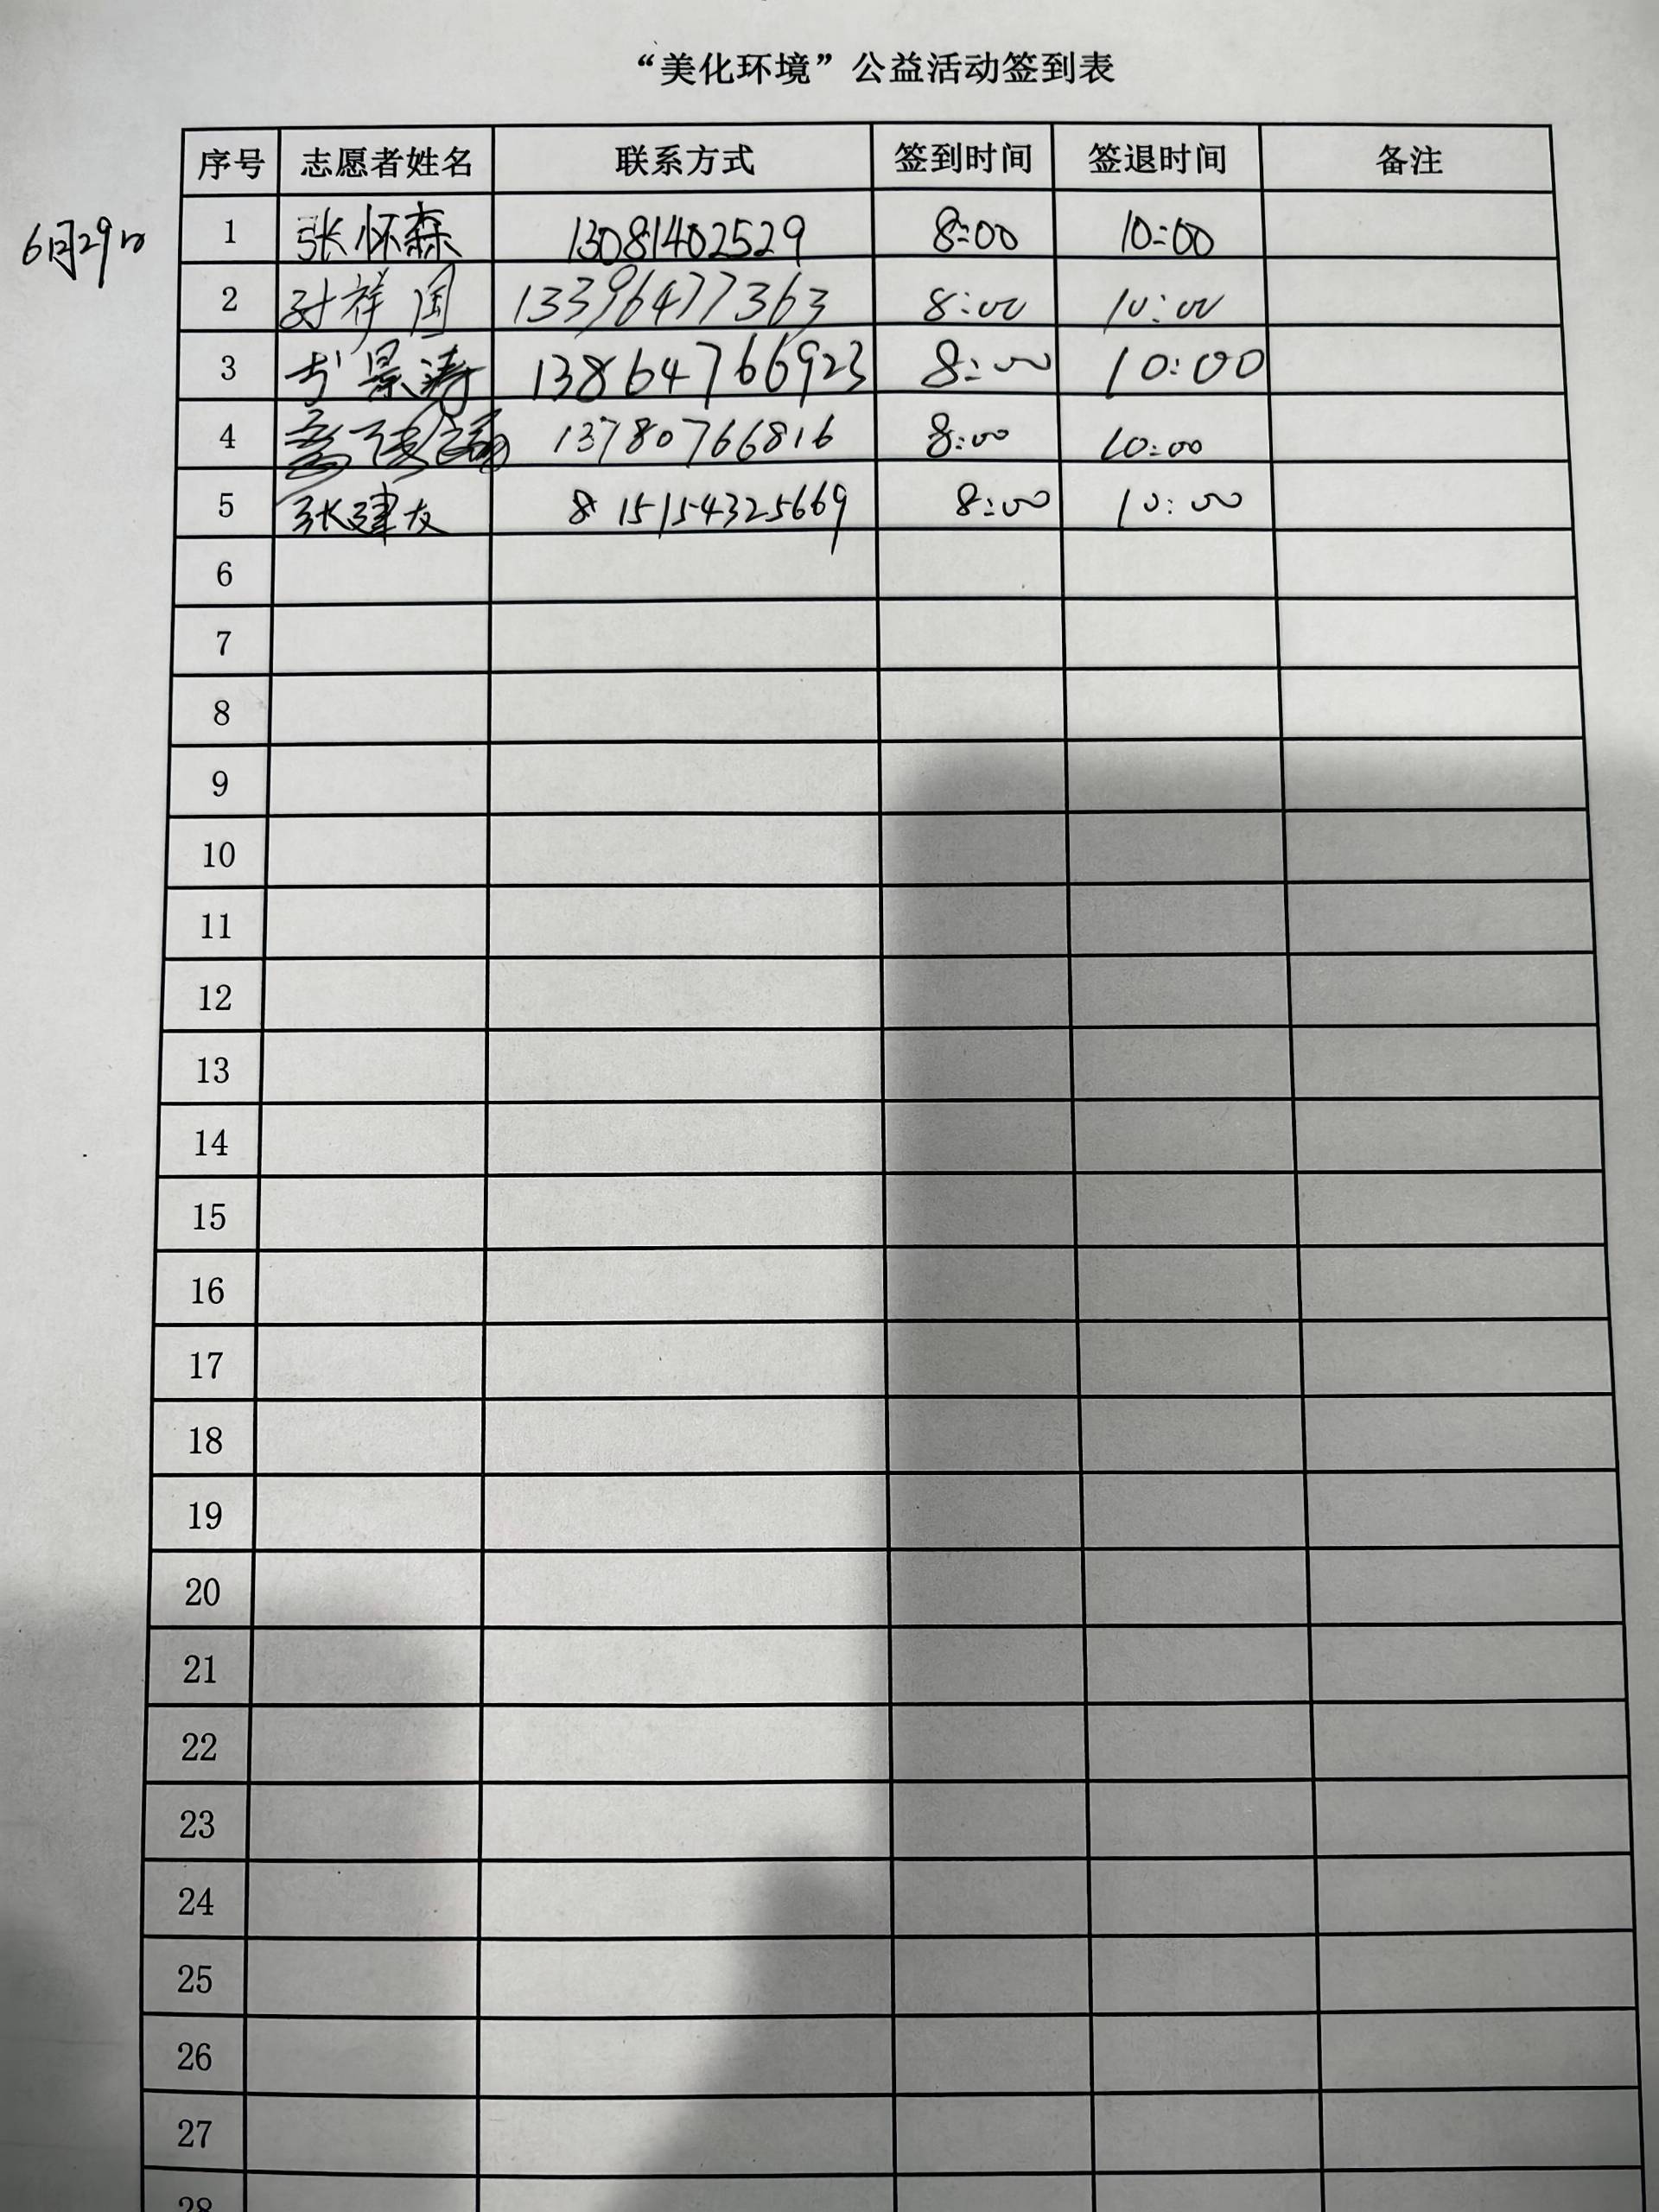 “美化环境”公益活动签到表
序号 志愿者姓名 联系方式 签到时间 签退时间 备注
6月29日
1 张怀森 13081402529 8:00 10:00
2 祥国 13396477363 8:00 10:00
3 景涛 13864766923 8:00 10:00
4 13780766816 8:00 10:00
5 张建友 8 15154325669 8:00 10:00
6
7
8
9
10
11
12
13
14
15
16
17
18
19
20
21
22
23
24
25
26
27
28